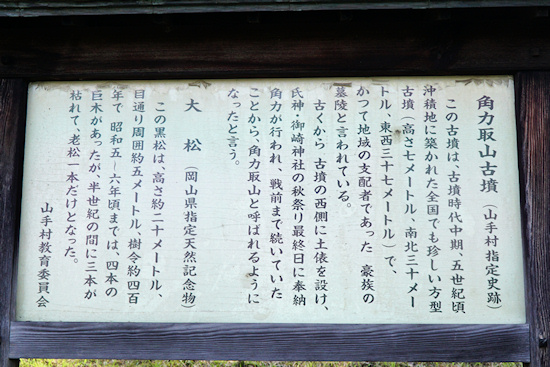 角力取山古墳（山手村指定史跡）
この古墳は、古墳時代中期、五世紀頃、
沖積地に築かれた全国でも珍しい方型
古墳（高さ七メートル、南北三十メー
トル、東西三十七メートル）で、
かつて地域の支配者であった 豪族の
墓陵と言われている。
古くから 古墳の西側に土俵を設け、
氏神・御崎神社の秋祭り最終日に奉納
角力が行われ、戦前まで続いていた
ことから、角力取山と呼ばれるように
なったと言う。
大 松（岡山県指定天然記念物）
この黒松は、高さ約二十メートル、
目通り周囲約五メートル、樹令約四百
年で 昭和五―六年頃までは、四本の
巨木があったが、半世紀の間に三本が
枯れて、老松一本だけとなった。
山手村教育委員会